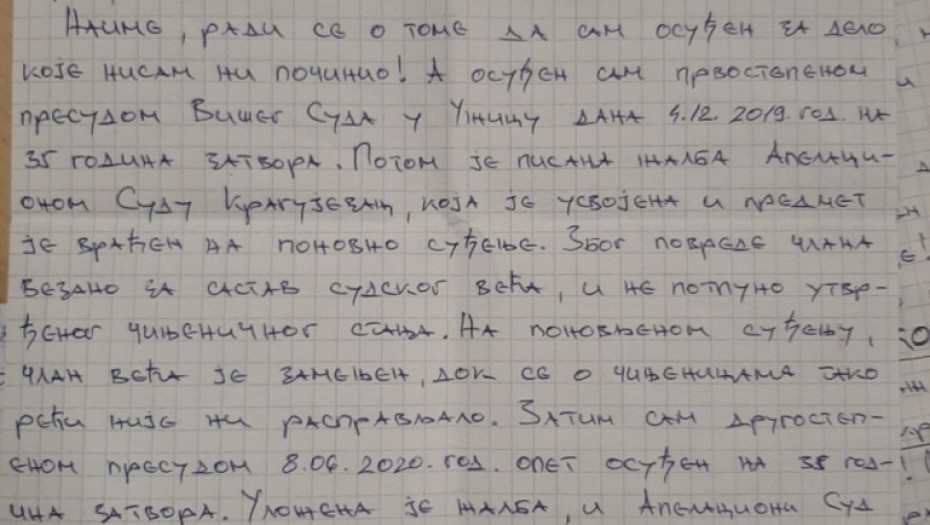 Наиме, ради се о томе да сам осуђен за дело
које нисам ни починио! А осуђен сам првостепеном
пресудом Вишег Суда у Ужицу дана 4.12. 2019. год. на
35 година затвора. Потом је писана жалба Апелаци-
оном Суду Крагујевац, која је усвојена и предмет
је враћен на поновно суђење. Због повреде члана
везано за састав судског већа, и не потпуно утвр-
ђеног чињеничног стања. На поновљеном суђењу,
члан већа је замењен, док се о чињеницама тако
рећи није ни расправљало. Затим сам другостеп-
еном пресудом 8.06. 2020. год. опет осуђен на 35 год-
ина затвора. Уложена је жалба, и Апелациони Суд